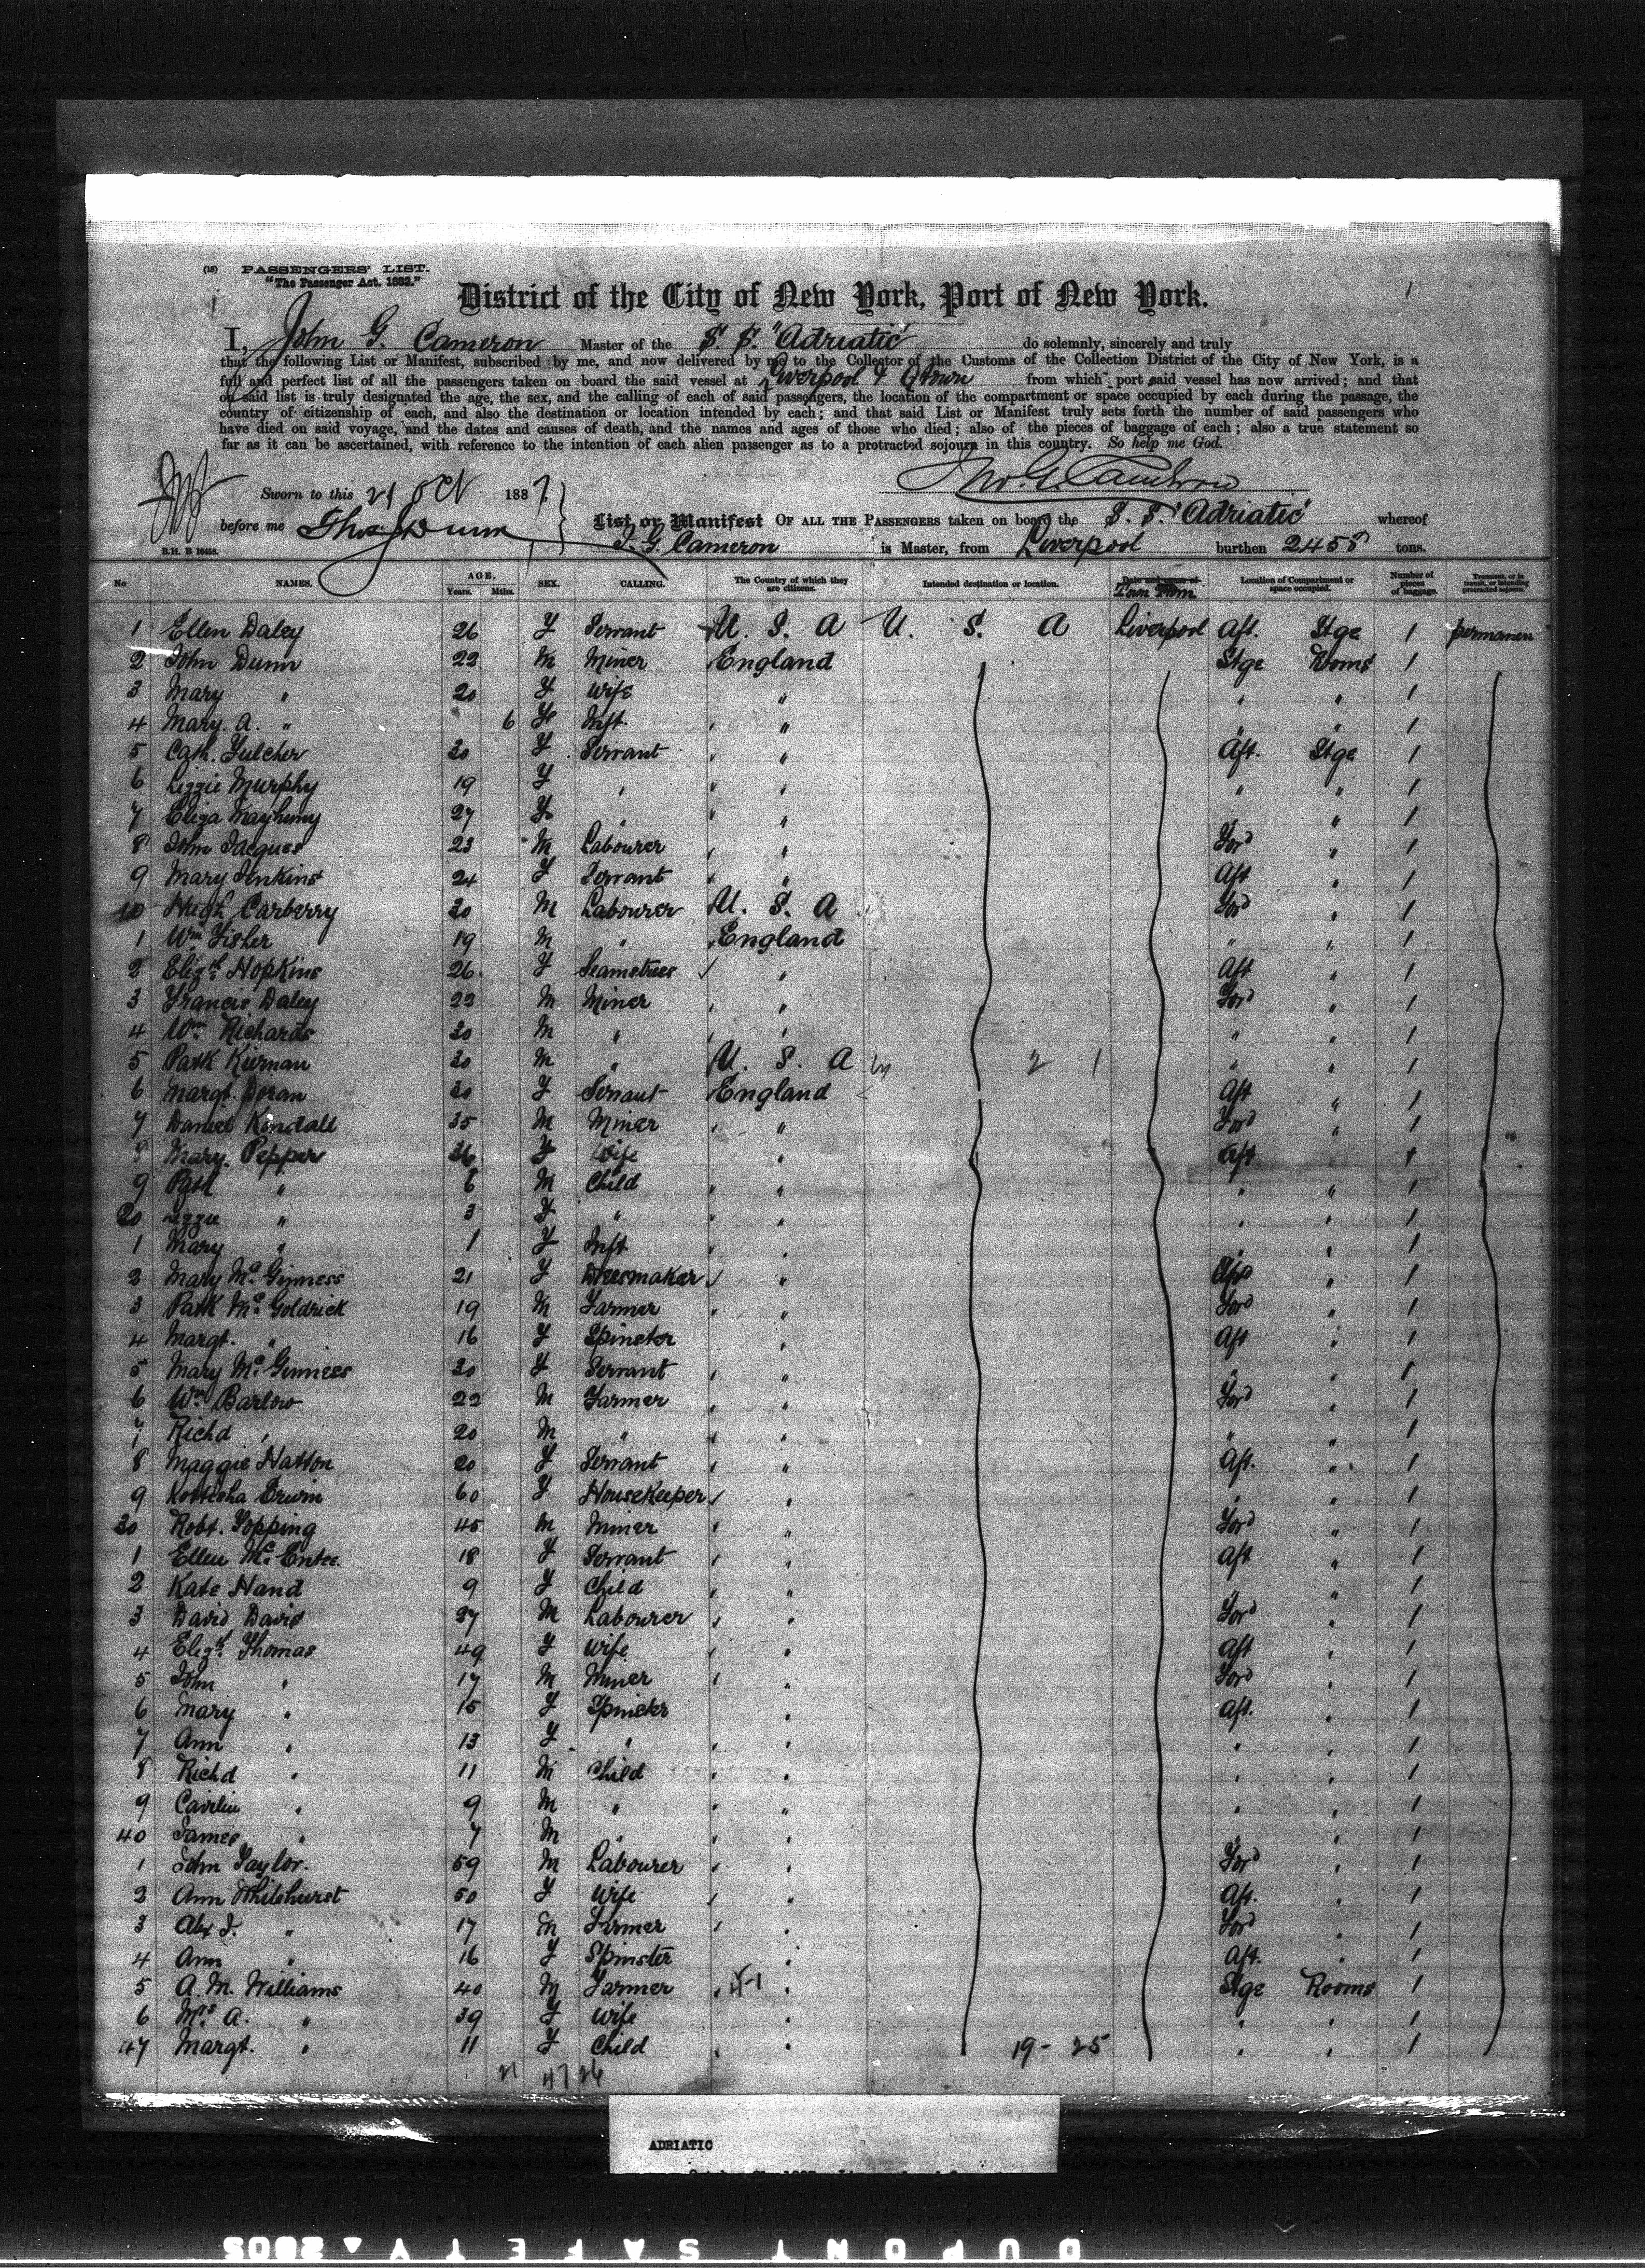 (18) PASSENGERS' LIST.
"The Passenger Act. 1882."
District of the City of New York, Port of New York.
I, John G. Cameron Master of the S. S. "Adriatic" do solemnly, sincerely and truly
that the following List or Manifest, subscribed by me, and now delivered by me to the Collector of the Customs of the Collection District of the City of New York, is a
full and perfect list of all the passengers taken on board the said vessel at Liverpool & Qtown from which port said vessel has now arrived; and that
on said list is truly designated the age, the sex, and the calling of each of said passengers, the location of the compartment or space occupied by each during the passage, the
country of citizenship of each, and also the destination or location intended by each; and that said List or Manifest truly sets forth the number of said passengers who
have died on said voyage, and the dates and causes of death, and the names and ages of those who died; also of the pieces of baggage of each; also a true statement so
far as it can be ascertained, with reference to the intention of each alien passenger as to a protracted sojourn in this country. So help me God.
Jno. G. Cameron
Sworn to this 21 Oct 1887
before me Thos J Dunn
List or Manifest OF ALL THE PASSENGERS taken on board the S. S. "Adriatic" whereof
B.H. B 16458. J. G. Cameron is Master, from Liverpool burthen 2458 tons.
No NAMES. AGE. Years. Mths. SEX. CALLING. The Country of which they are citizens. Intended destination or location. Location of Compartment or space occupied. Number of pieces of baggage. Transient, or in transit, or intending protracted sojourn.
1 Ellen Daley 26 F Servant U. S. A U. S. A Liverpool Aft. Stge 1 permanen
2 John Dunn 22 M Miner England Stge Rooms 1
3 Mary " 20 F Wife " " " 1
4 Mary. A. " 6 F Inft. " " " 1
5 Cath. Fulcher 30 F Servant " Aft. Stge 1
6 Lizzie Murphy 19 F " " " " 1
7 Eliza 27 F " " " " 1
8 John Jacques 23 M Labourer " Ford " 1
9 Mary Jenkins 24 F Servant " Aft " 1
10 Hugh Carberry 30 M Labourer U. S. A Ford " 1
1 Wm Fisher 19 M " England " " 1
2 Elizth Hopkins 26 F Seamstress " Aft " 1
3 Francis Daley 22 M Miner " Ford " 1
4 Wm Richards 30 M " " " " 1
5 Patk Kiernan 30 M " U. S. A 2 1 " " 1
6 Margt. Doran 30 F Servant England Aft " 1
7 Daniel Kendall 35 M Miner " Ford " 1
8 Mary. Pepper 36 F Wife " Aft " 1
9 Patk " 6 M Child " " " 1
20 Lizzie " 3 F " " " " 1
1 Mary " 1 F Inft " " " 1
2 Mary McGinness 21 F Dressmaker " " 1
3 Patk McGoldrick 19 M Farmer " Ford " 1
4 Margt. " 16 F Spinster " Aft " 1
5 Mary McGinness 30 F Servant " " " 1
6 Wm Barlow 22 M Farmer " Ford " 1
7 Richd " 20 M " " " " 1
8 Maggie Hatton 20 F Servant " Aft. " 1
9 Erwin 60 F Housekeeper " " " 1
30 Robt. Topping 45 M Miner " Ford " 1
1 Ellen McEntee 18 F Servant " Aft " 1
2 Kate Hand 9 F Child " " " 1
3 David Davis 37 M Labourer " Ford " 1
4 Elizth Thomas 49 F Wife " Aft " 1
5 John " 17 M Miner " Ford " 1
6 Mary " 15 F Spinster " Aft. " 1
7 Ann " 13 F " " " " 1
8 Richd " 11 M Child " " " 1
9 " 9 M " " " " 1
40 James " 7 M " " " " 1
1 John Taylor. 59 M Labourer " Ford " 1
2 Ann Whilshurst 50 F Wife " Aft. " 1
3 Alex J. " 17 M Farmer " Ford " 1
4 Ann " 16 F Spinster " Aft. " 1
5 A. M. Williams 40 M Farmer " Stge Rooms 1
6 Mrs A. " 39 F Wife " " " 1
47 Margt. " 11 F Child " 19 - 25 " " 1
21 47 26
ADRIATIC
DUPONT SAFETY